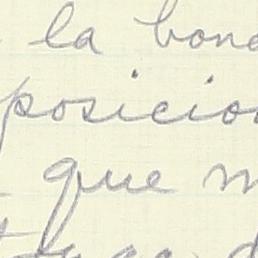 la bond
posicion
que m